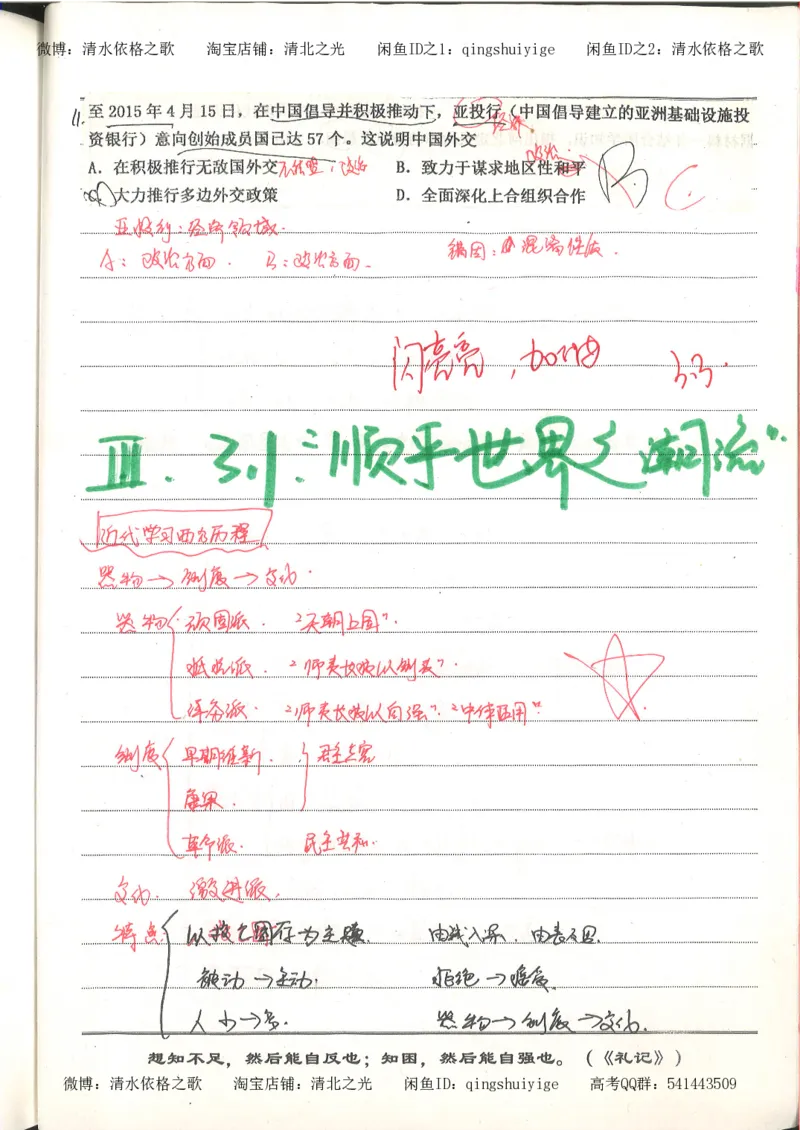 微博：清水依格之歌 淘宝店铺：清北之光 闲鱼ID之1：qingshuiyige 闲鱼ID之2：清水依格之歌
11. 至 2015 年 4 月 15 日，在中国倡导并积极推动下，亚投行（中国倡导建立的亚洲基础设施投
经济
资银行）意向创始成员国已达 57 个。这说明中国外交
政治
A．在积极推行无敌国外交 不结盟，政治 B．致力于谋求地区性和平 B C
C．大力推行多边外交政策 D．全面深化上合组织合作
亚投行：经济领域.
A：政治方面. B：政治方面.
错因：混淆性质.
闪亮亮，加油 3.3.
Ⅲ. 3.1："顺乎世界之潮流"
近代学习西方历程
器物→制度→文化.
器物 顽固派. "天朝上国".
抵抗派. "师夷长技以制夷".
洋务派. "师夷长技以自强". "中体西用"
制度 早期维新. 君主立宪
康梁.
革命派. 民主共和.
文化. 激进派.
特点 以救亡图存为主题. 由浅入深. 由表及里.
被动→主动. 拒绝→
人少→多. 器物→制度→文化.
想知不足，然后能自反也；知困，然后能自强也。（《礼记》）
微博：清水依格之歌 淘宝店铺：清北之光 闲鱼ID：qingshuiyige 高考QQ群：541443509